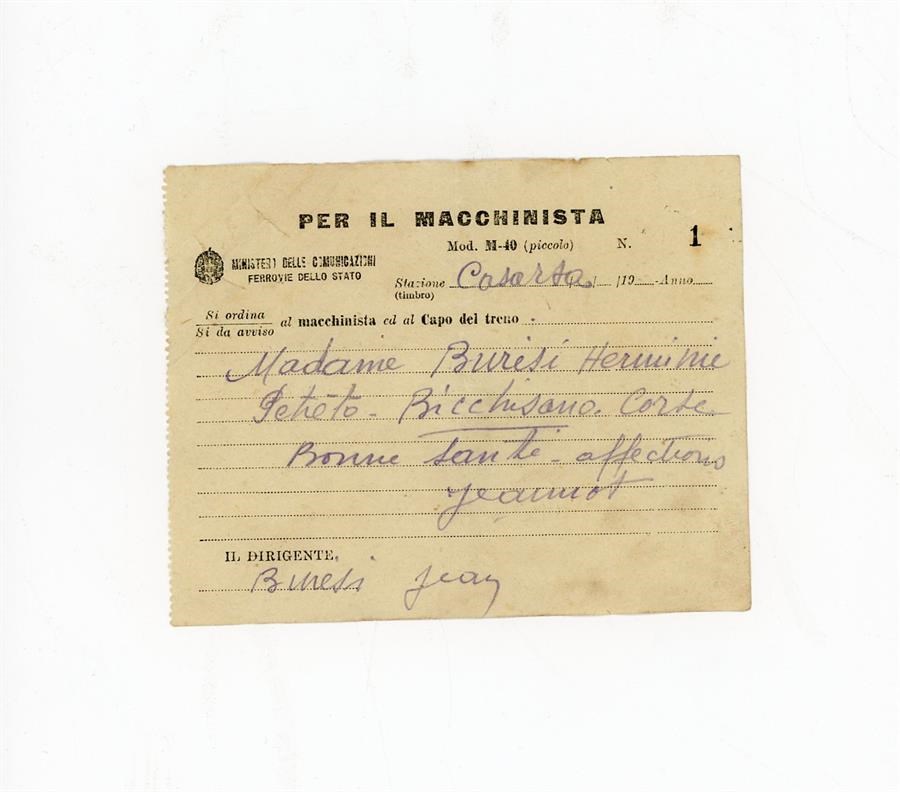 PER IL MACCHINISTA
Mod. M-40 (piccolo) N. 1
MINISTERO DELLE COMUNICAZIONI
FERROVIE DELLO STATO
Stazione Casarsa / /19 -Anno
(timbro)
Si ordina
Si da avviso
al macchinista ed al Capo del treno
Madame Buresi Herminie
Petreto - Bicchisano. Corse
Bonne santé - affections
Jeannot
IL DIRIGENTE,
Buresi Jean